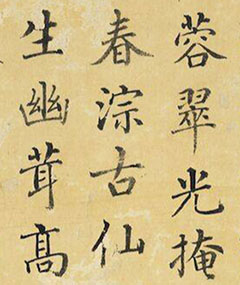 蓉翠光掩
春淙古仙
生幽茸高